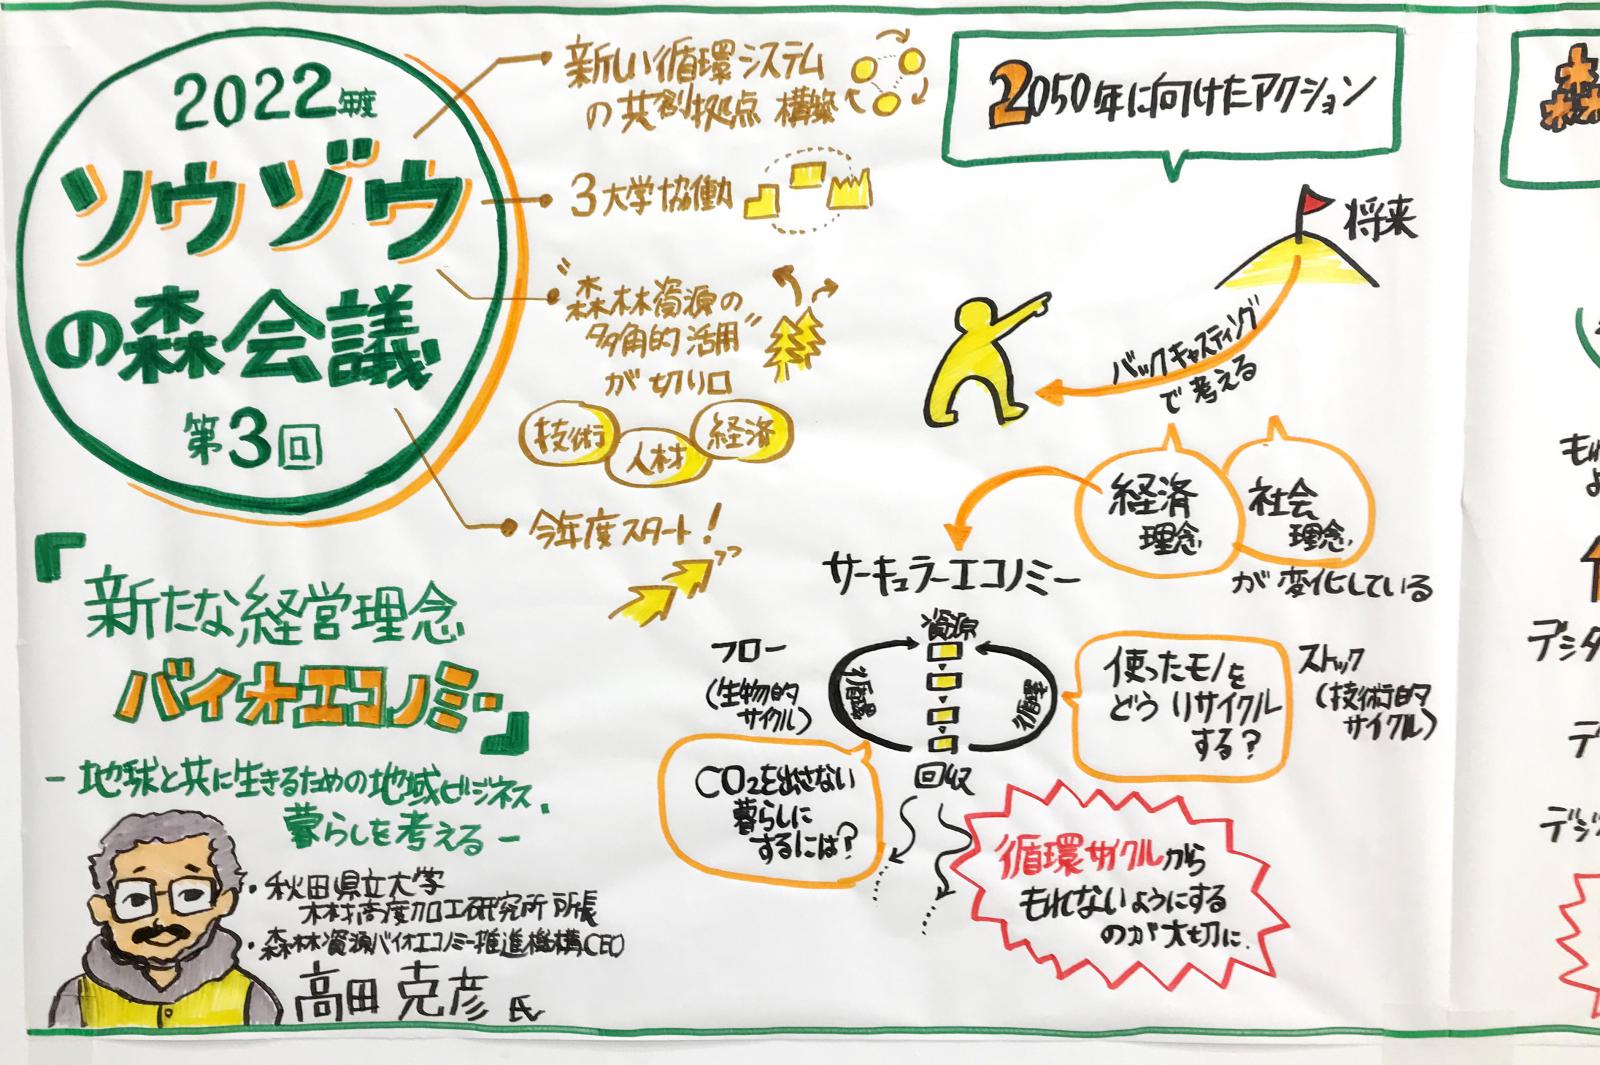 2022年度
ソウゾウ
の森会議
第3回
新しい循環システム
の共創拠点 構築
3大学協働
"森林資源の
多角的活用"
が切り口
技術
人材
経済
今年度スタート!
『新たな経営理念
バイオエコノミー』
- 地球と共に生きるための地域ビジネス、
暮らしを考える -
・秋田県立大学
木材高度加工研究所 所長
・森林資源バイオエコノミー推進機構CEO
高田 克彦 氏
2050年に向けたアクション
将来
バックキャスティング
で考える
経済
理念
社会
理念
が変化している
サーキュラーエコノミー
資源
フロー
(生物的
サイクル)
循環
循環
ストック
(技術的
サイクル)
使ったモノを
どうリサイクル
する?
回収
CO2を出さない
暮らしに
するには?
循環サイクルから
もれないようにする
のが大切に.
デジ
デジ